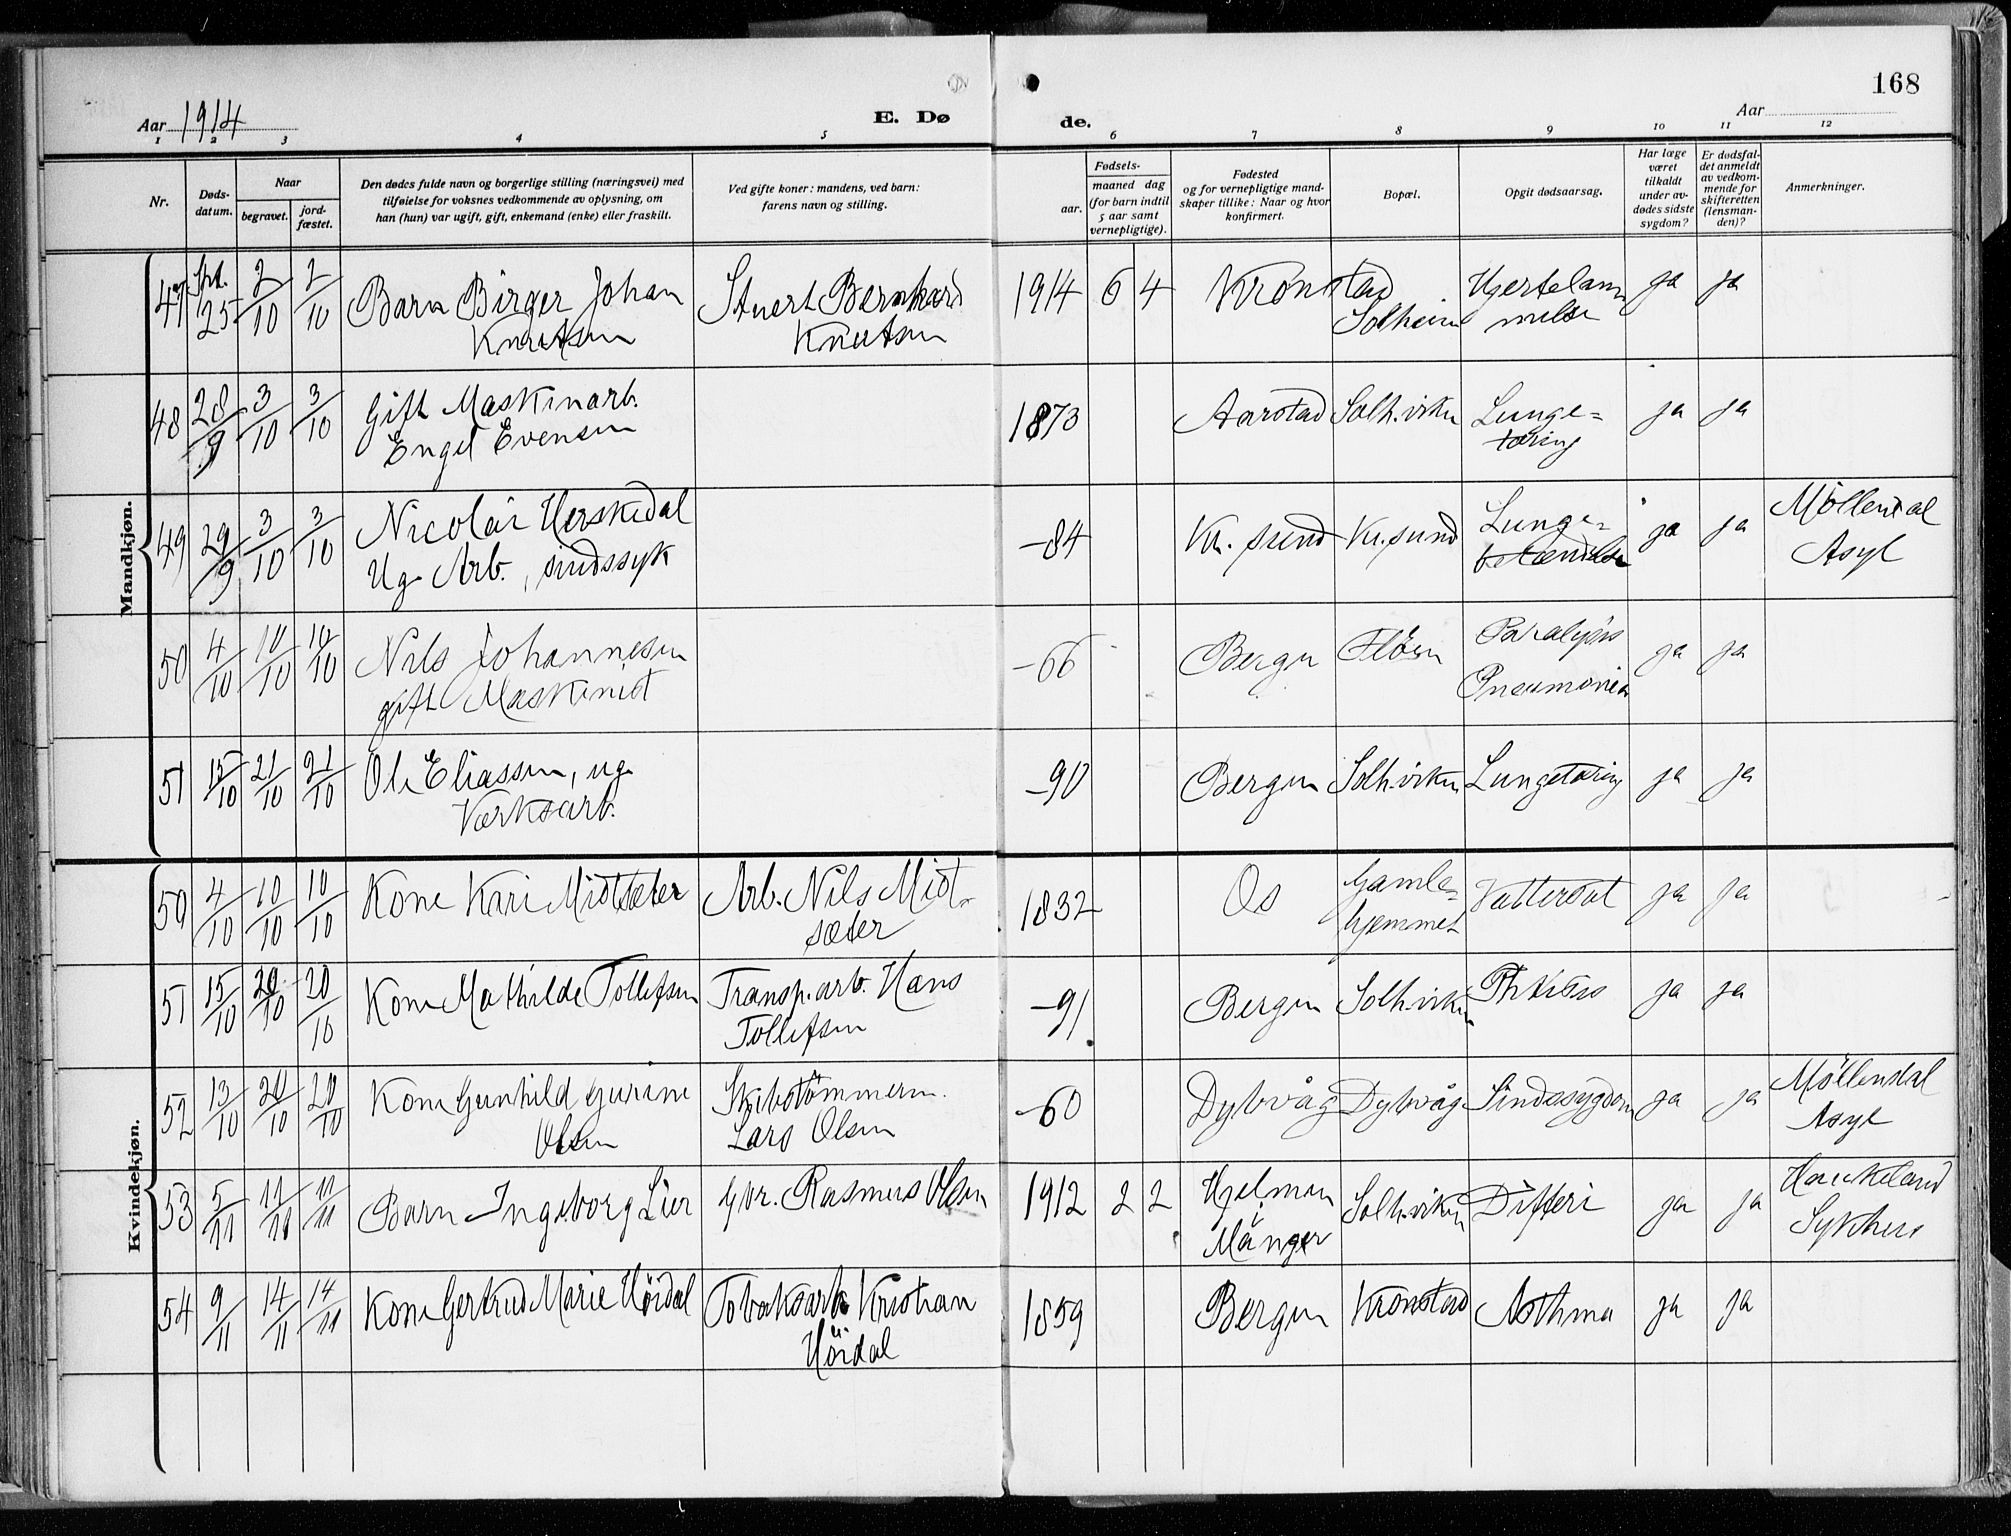 168
Aar 1914
E. Dø
de.
Aar
1 2 3 4 5 6 7 8 9 10 11 12
Nr.
Døds-
datum.
Naar
begravet.
jord-
fæstet.
Den dødes fulde navn og borgerlige stilling (næringsvei) med
tilføielse for voksnes vedkommende av oplysning, om
han (hun) var ugift, gift, enkemand (enke) eller fraskilt.
Ved gifte koner: mandens, ved barn:
farens navn og stilling.
Fødsels-
aar.
maaned dag
(for barn indtil
5 aar samt
vernepligtige).
Fødested
og for vernepligtige mand-
skaper tillike: Naar og hvor
konfirmert.
Bopæl.
Opgit dødsaarsag.
Har læge
været
tilkaldt
under av-
dødes sidste
sygdom?
Er dødsfal-
det anmeldt
av vedkom-
mende for
skifteretten
(lensman-
den)?
Anmerkninger.
Mandkjøn.
47 Spt. 25 2/10 2/10 Barn Birger Johan Sivert Bernhard 1914 6 4 Kronstad Hjertelam ja ja
Knutsen Knutsen Solheim melse
48 28/9 3/10 3/10 Gift Maskinarb. 1873 Aarstad Solh.viken Lunge= ja ja
Engel Evensen tæring
49 29/9 3/10 3/10 Nicolai Herskedal -84 Kr. sund Kr. sund Lunge= ja ja Möllendal
Ug. Arb., sindssyk betændelse Asyl
50 4/10 10/10 10/10 Nils Johannesen -66 Bergen Flöen Paralysis ja ja
gift Maskinist Pneumonia
51 15/10 21/10 21/10 Ole Eliassen, ug. -90 Bergen Solh.viken Lungetæring ja ja
Værksarb.
Kvindekjøn.
50 4/10 10/10 10/10 Kone Kari Midtsæter Arb. Nils Midt- 1832 Os Gamle= Vattersot ja ja
sæter hjemmet
51 15/10 20/10 20/10 Kone Mathilde Tollefsen Transp.arb. Hans -91 Bergen Solh.viken Phtisis ja ja
Tollefsen
52 13/10 20/10 20/10 Kone Gunhild Gurine Skibstömmerm. -60 Dybvåg Dybvåg Sindssygdom ja ja Möllendal
Olsen Lars Olsen Asyl
53 5/11 11/11 11/11 Barn Ingeborg Lier Gbr. Rasmus Olsen 1912 2 2 Hjelmen Solh.viken Difteri ja ja Haukeland
Manger Sykehus
54 9/11 14/11 14/11 Kone Gertrud Marie Höidal Tobaksarb. Kristian 1859 Bergen Kronstad Asthma ja ja
Höidal